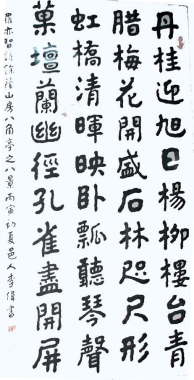 丹桂迎旭日楊柳樓台青
腊梅花開盛石林咫尺形
虹橋清暉映卧瓢聽琴聲
菓壇蘭幽徑孔雀盡開屏
羅亦智詠餘蔭山房八角亭之八景丙寅初夏邑人李偉書